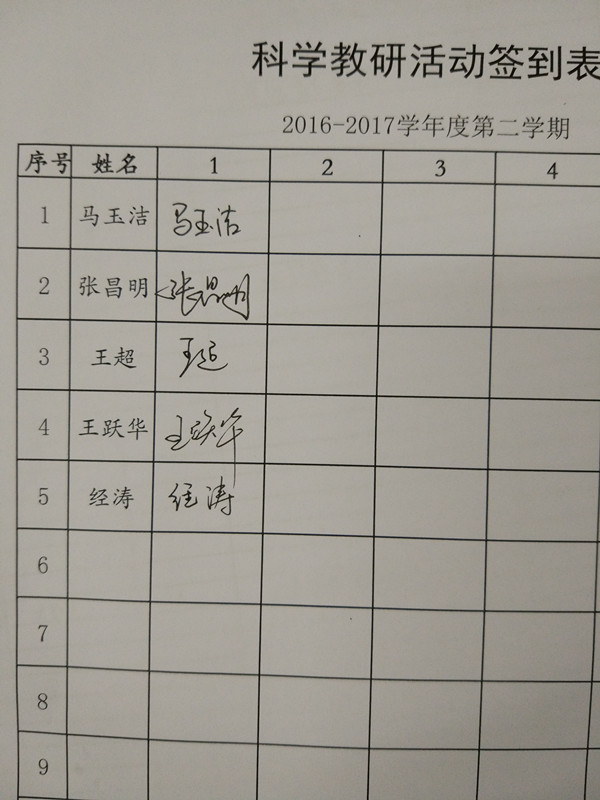 科学教研活动签到表
2016-2017学年度第二学期
序号 姓名 1 2 3 4
1 马玉洁 马玉洁
2 张昌明 张昌明
3 王超 王超
4 王跃华 王跃华
5 经涛 经涛
6
7
8
9